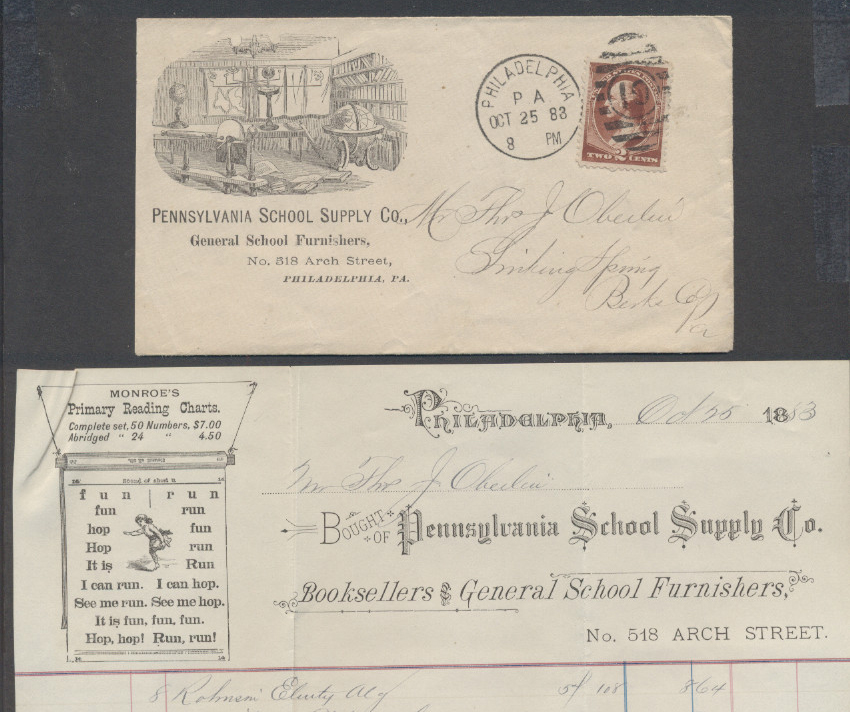 PENNSYLVANIA SCHOOL SUPPLY CO.,
General School Furnishers,
No. 518 Arch Street,
PHILADELPHIA, PA.
PHILADELPHIA
PA
OCT 25 83
8 PM
TWO 2 CENTS
Mr Thos J. Oberlin
Sinking Spring
Berks Co
Pa
MONROE'S
Primary Reading Charts.
Complete set, 50 Numbers, $7.00
Abridged " 24 " 4.50
fun | run
fun run
hop fun
Hop run
It is Run
I can run. I can hop.
See me run. See me hop.
It is fun, fun, fun.
Hop, hop! Run, run!
PHILADELPHIA, Oct 25 1883
Mr Thos J Oberlin
BOUGHT OF Pennsylvania School Supply Co.
Booksellers & General School Furnishers,
No. 518 ARCH STREET.
8 Alg 108 864